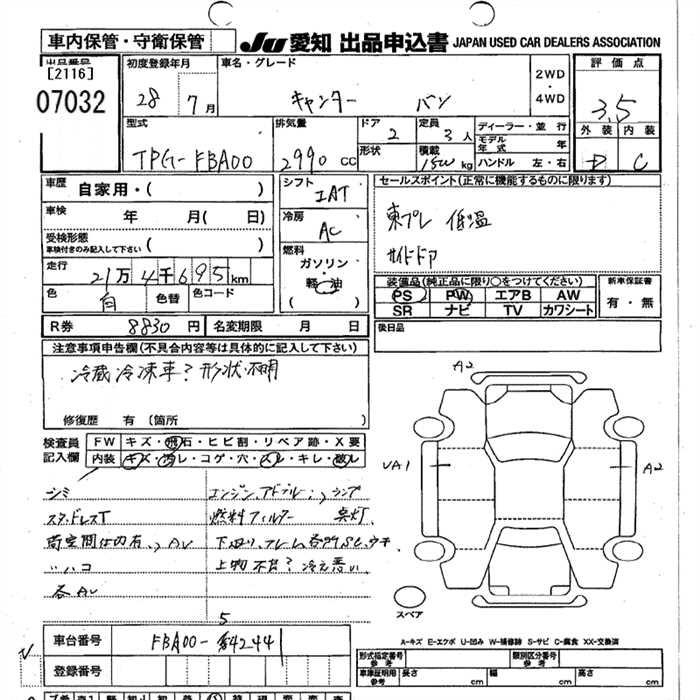 車内保管・守衛保管
JU 愛知 出品申込書 JAPAN USED CAR DEALERS ASSOCIATION
出品番号
[2116]
07032
初度登録年月
28年 7月
車名・グレード
キャンター バン
2WD
・
4WD
評価点
3.5
外装 内装
D C
型式
TPG-FBA00
排気量
2990 CC
ドア 2
形状
定員 3人
積載 1500 kg
ディーラー・並行
モデル年式 年
ハンドル 左・右
車歴
自家用・( )
車検 年 月( 日)
受検形態
車検付きのみ記入して下さい ( )
走行
21万4千695km
色 白 色替 色コード
シフト
IAT
冷房
AC
燃料
ガソリン
・
軽油
( )
セールスポイント(正常に機能するものに限ります)
東プレ 低温
サイドドア
装備品(純正品に限り○をつけてください)
PS PW エアB AW
SR ナビ TV カワシート
新車保証書
有・無
R券 8830円 名変期限 月 日
後日品
注意事項申告欄(不具合内容等は具体的に記入して下さい)
冷蔵冷凍車?形状不明
修復歴 有(箇所 )
検査員
記入欄
FW キズ・飛石・ヒビ割・リペア跡・X要
内装 キズ・汚レ・コゲ・穴・スレ・キレ・破レ
シミ
スタッドレスT
荷室間仕内有、AU
〃ハコ
各AU
エンジン、アドブルー、ランプ
燃料フィルター 臭灯
下廻り、フレーム各所SC、ウキ
上物不良?冷え悪い
A2
UA1
A2
スペア
A-キズ E-エクボ U-凹み W-補修跡 S-サビ C-腐食 XX-交換済
車台番号 FBA00-542441
5
登録番号
形式指定番号
参考
類別区分番号
参考
車庫証明用
参考
長さ cm 幅 cm 高さ cm